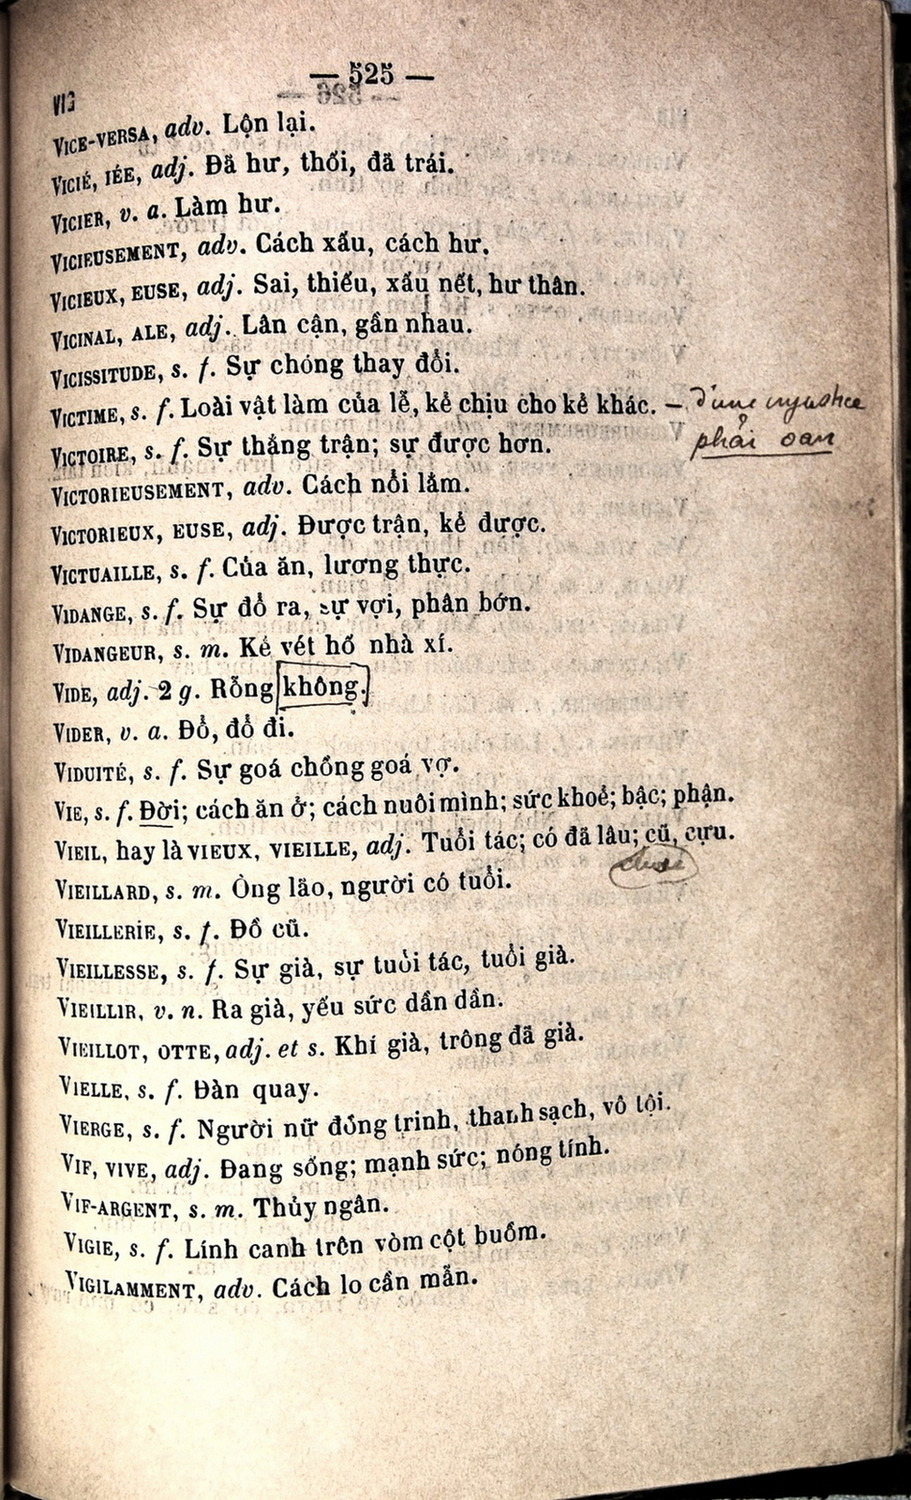 — 525 —
VIG
VICE-VERSA, adv. Lộn lại.
VICIÉ, IÉE, adj. Đã hư, thối, đã trái.
VICIER, v. a. Làm hư.
VICIEUSEMENT, adv. Cách xấu, cách hư.
VICIEUX, EUSE, adj. Sai, thiếu, xấu nết, hư thân.
VICINAL, ALE, adj. Lân cận, gần nhau.
VICISSITUDE, s. f. Sự chóng thay đổi.
VICTIME, s. f. Loài vật làm của lễ, kẻ chịu cho kẻ khác. — d'une injustice
phải oan
VICTOIRE, s. f. Sự thắng trận; sự được hơn.
VICTORIEUSEMENT, adv. Cách nổi lắm.
VICTORIEUX, EUSE, adj. Được trận, kẻ được.
VICTUAILLE, s. f. Của ăn, lương thực.
VIDANGE, s. f. Sự đổ ra, sự vợi, phân bớn.
VIDANGEUR, s. m. Kẻ vét hố nhà xí.
VIDE, adj. 2 g. Rỗng không.
VIDER, v. a. Đổ, đổ đi.
VIDUITÉ, s. f. Sự goá chồng goá vợ.
VIE, s. f. Đời; cách ăn ở; cách nuôi mình; sức khoẻ; bậc; phận.
VIEIL, hay là VIEUX, VIEILLE, adj. Tuổi tác; có đã lâu; cũ, cựu.
VIEILLARD, s. m. Ông lão, người có tuổi.
VIEILLERIE, s. f. Đồ cũ.
VIEILLESSE, s. f. Sự già, sự tuổi tác, tuổi già.
VIEILLIR, v. n. Ra già, yếu sức dần dần.
VIEILLOT, OTTE, adj. et s. Khí già, trông đã già.
VIELLE, s. f. Đàn quay.
VIERGE, s. f. Người nữ đồng trinh, thanh sạch, vô tội.
VIF, VIVE, adj. Đang sống; mạnh sức; nóng tính.
VIF-ARGENT, s. m. Thủy ngân.
VIGIE, s. f. Lính canh trên vòm cột buồm.
VIGILAMMENT, adv. Cách lo cần mẫn.